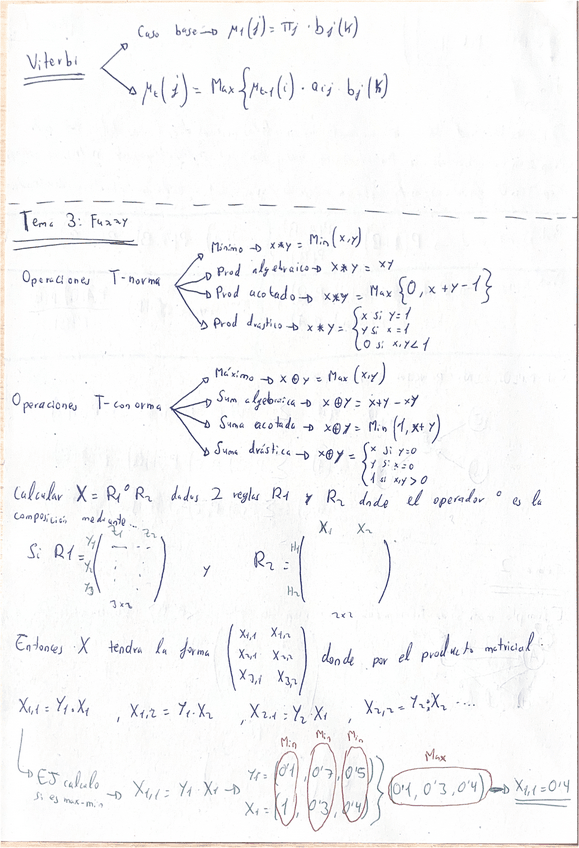 Viterbi
Caso base → μ₁(j) = πj · bj(k)
μt(j) = Max {μt-1(i) · aij · bj(k)
Tema 3: Fuzzy
Operaciones T-norma
Mínimo → x*y = Min(x,y)
Prod algebraico → x*y = xy
Prod acotado → x*y = Max {0, x+y-1}
Prod drástico → x*y = { x si y=1
y si x=1
0 si x,y<1
Operaciones T-conorma
Máximo → x⊕y = Max(x,y)
Sum algebraica → x⊕y = x+y-xy
Suma acotada → x⊕y = Min(1, x+y)
Suma drástica → x⊕y = { x si y=0
y si x=0
1 si x,y>0
Calcular X = R1°R2 dadas 2 reglas R1 y R2 donde el operador ° es la
composición mediante...
Z1 Z2
X1 X2
Si R1 = Y1 Y2 Y3 ( ) y R2 = H1 H2 ( )
3x2
2x2
Entonces X tendra la forma ( X1,1 X1,2
X2,1 X2,2
X3,1 X3,2 ) donde por el producto matricial:
X1,1 = Y1·X1 , X1,2 = Y1·X2 , X2,1 = Y2·X1 , X2,2 = Y2·X2 ....
Min Min Min
Max
EJ calculo si es max-min → X1,1 = Y1·X1 →
Y1 = (0'1, 0'7, 0'5)
X1 = (1, 0'3, 0'4)
} (0'1, 0'3, 0'4) → X1,1 = 0'4